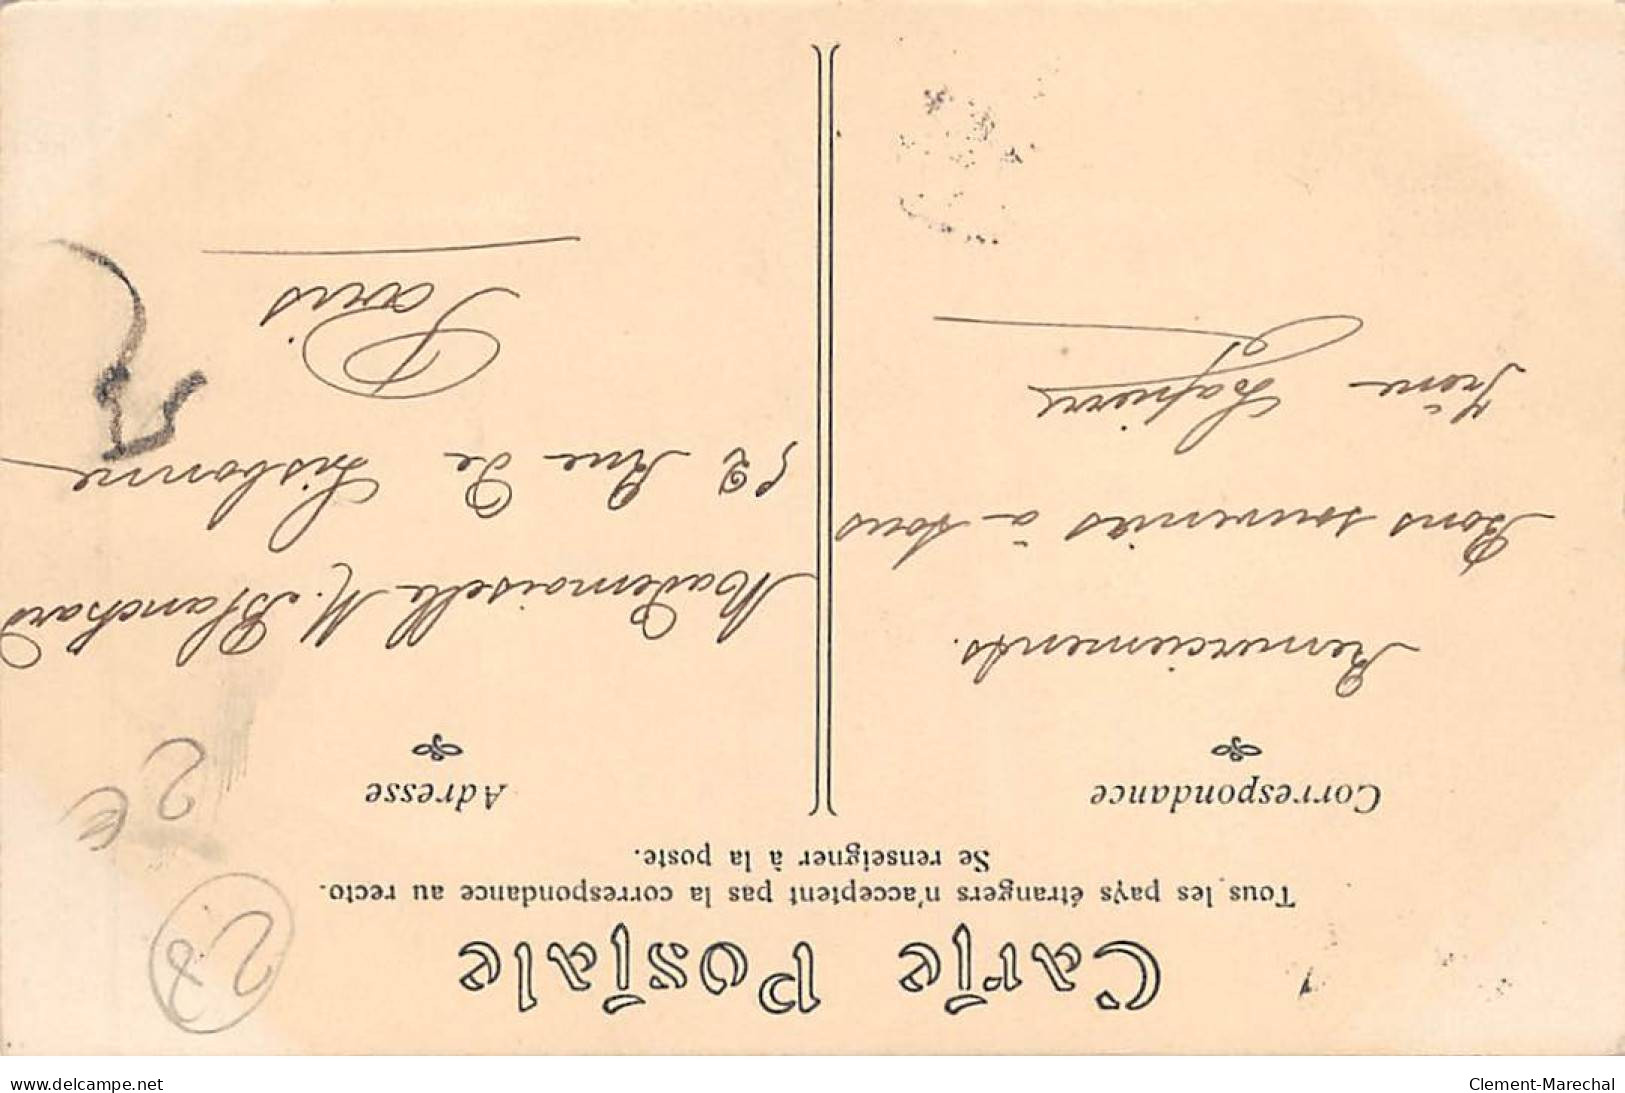 Carte Postale
Tous les pays étrangers n'acceptent pas la correspondance au recto.
Se renseigner à la poste.
Correspondance
Remerciements.
Bons souvenirs à tous
Irène Lapierre
Adresse
Mademoiselle M. Blanchard
52 Rue de Lisbonne
Paris
2€
28
www.delcampe.net
Clement-Marechal